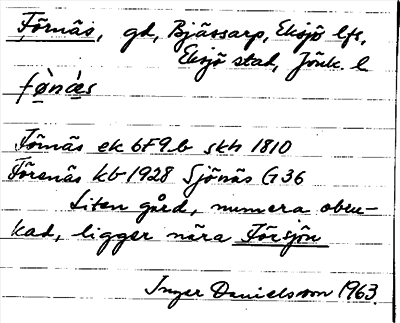 Förnäs, gd, Bjässarp, Eksjö lfs,
Eksjö stad, Jönk. l
fø̀næ̀s
Förnäs ek 6F9b skh 1810
Förenäs kb 1928 Sjönäs G36
Liten gård, numera obeu-
kad, ligger nära Försjön
Inger Danielsson 1963